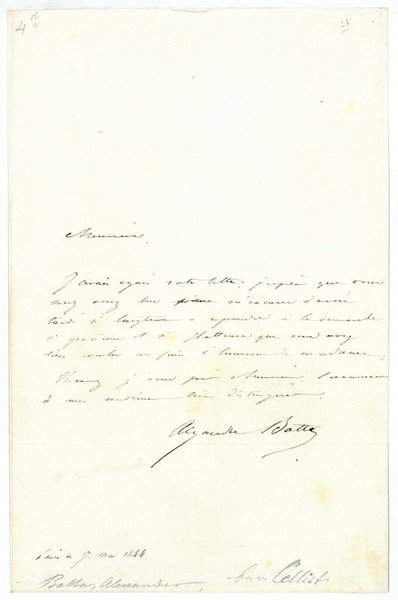 4d
23
Monsieur
J'avais égaré votre lettre; j'espère que vous
serez assez bon m'excuser d'avoir
tardé si longtemps à répondre à la demande
si gracieuse et si flatteuse que vous avez
bien voulu me faire l'honneur de m'adresser.
Recevez je vous prie Monsieur, l'assurance
de mes sentimens très distingués.
Alexandre Batta
Paris 7 Mai 1844
Batta, Alexander, Cellist